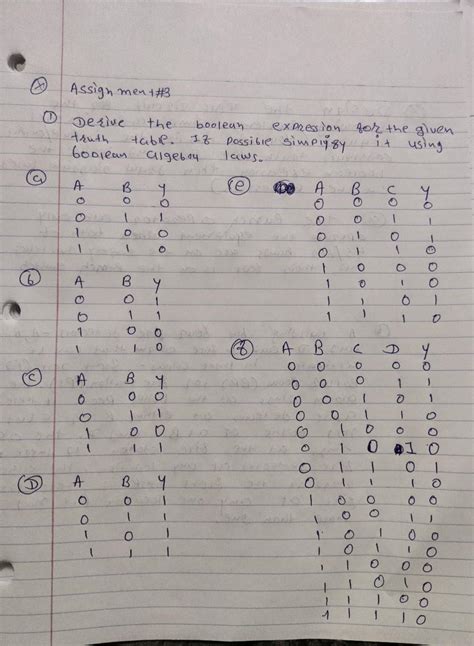 Assignment#3
① Derive the boolean expression for the given
truth table. If possible simplify it using
boolean algebra laws.
ⓐ
A B Y
0 0 0
0 1 1
1 1 0
ⓑ
A B Y
0 0 1
0 1 1
1 0 0
1 1 0
ⓒ
A B Y
0 0 0
0 1 1
1 0 0
1 1 1
Ⓓ
A B Y
0 0 1
0 1 1
1 0 1
1 1 1
ⓔ
A B C Y
0 0 0 0
0 0 1 1
0 1 0 1
0 1 1 0
1 0 0 0
1 0 1 0
1 1 0 1
1 1 1 0
A B C D Y
0 0 0 0 0
0 0 0 1 1
0 0 1 0 1
0 0 1 1 0
0 1 0 0 0
0 1 0 1 0
0 1 1 0 1
0 1 1 1 0
1 0 0 0 0
1 0 0 1 1
1 0 1 0 0
1 0 1 1 0
1 1 0 0 0
1 1 0 1 0
1 1 1 0 0
1 1 1 1 0